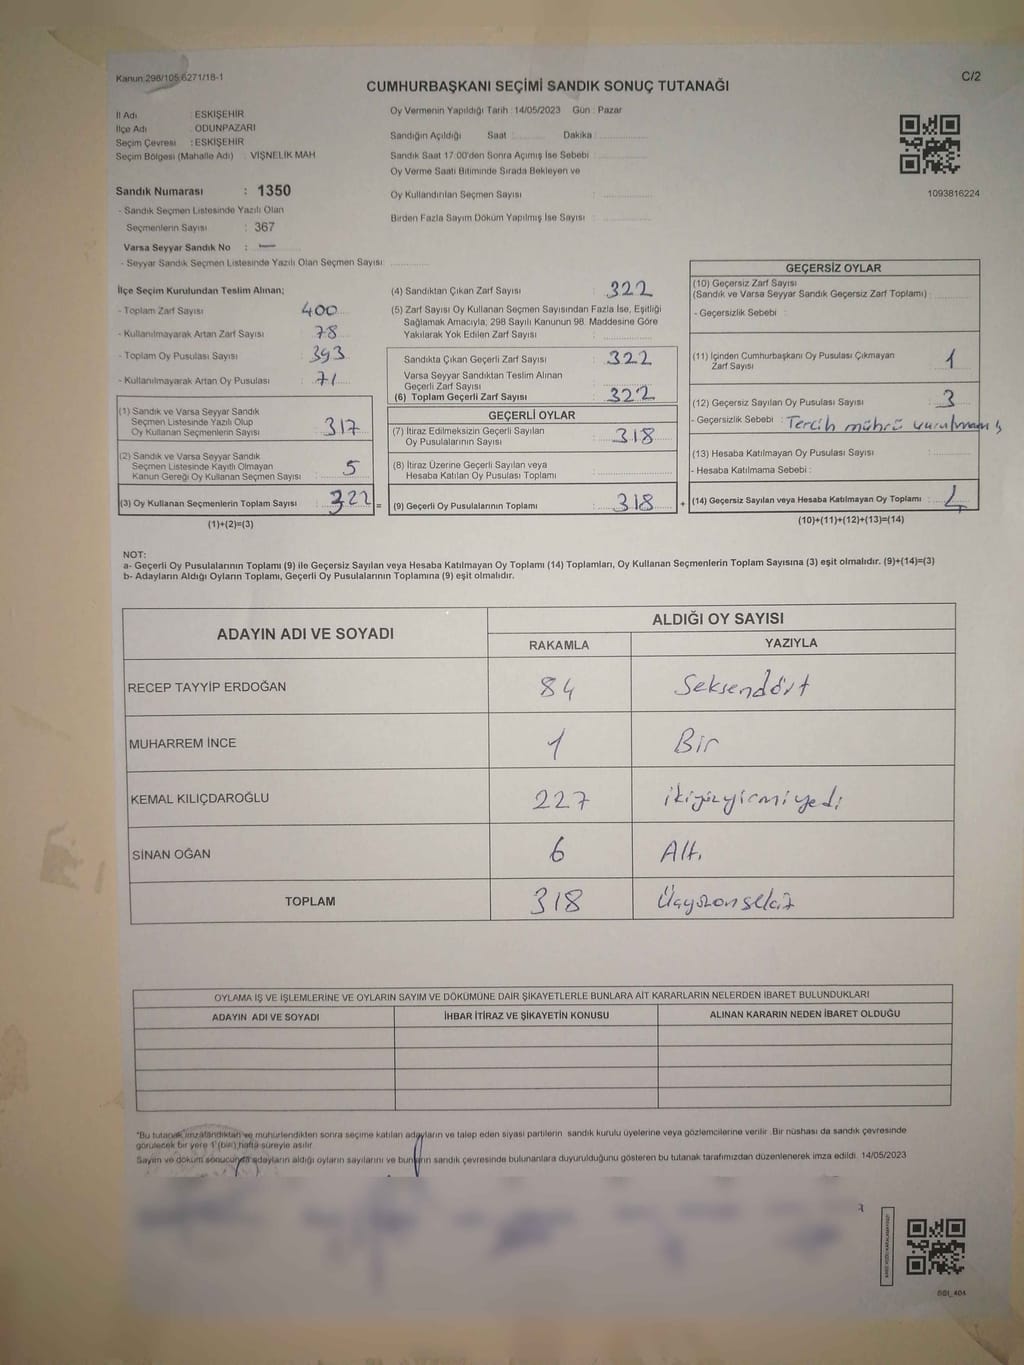 Kanun:298/105,6271/18-1
C/2
CUMHURBAŞKANI SEÇİMİ SANDIK SONUÇ TUTANAĞI
İl Adı : ESKİŞEHİR
İlçe Adı : ODUNPAZARI
Seçim Çevresi : ESKİŞEHİR
Seçim Bölgesi (Mahalle Adı) : VİŞNELİK MAH
Sandık Numarası : 1350
- Sandık Seçmen Listesinde Yazılı Olan
Seçmenlerin Sayısı : 367
Varsa Seyyar Sandık No : —
- Seyyar Sandık Seçmen Listesinde Yazılı Olan Seçmen Sayısı:
Oy Vermenin Yapıldığı Tarih : 14/05/2023 Gün : Pazar
Sandığın Açıldığı Saat : Dakika :
Sandık Saat 17:00'den Sonra Açımış İse Sebebi :
Oy Verme Saati Bitiminde Sırada Bekleyen ve
Oy Kullandırılan Seçmen Sayısı :
Birden Fazla Sayım Döküm Yapılmış İse Sayısı :
1093816224
İlçe Seçim Kurulundan Teslim Alınan;
- Toplam Zarf Sayısı : 400
- Kullanılmayarak Artan Zarf Sayısı : 78
- Toplam Oy Pusulası Sayısı : 393
- Kullanılmayarak Artan Oy Pusulası : 71
(1) Sandık ve Varsa Seyyar Sandık
Seçmen Listesinde Yazılı Olup
Oy Kullanan Seçmenlerin Sayısı : 317
(2) Sandık ve Varsa Seyyar Sandık
Seçmen Listesinde Kayıtlı Olmayan
Kanun Gereği Oy Kullanan Seçmen Sayısı : 5
(3) Oy Kullanan Seçmenlerin Toplam Sayısı : 322
(1)+(2)=(3)
=
(4) Sandıktan Çıkan Zarf Sayısı : 322
(5) Zarf Sayısı Oy Kullanan Seçmen Sayısından Fazla İse, Eşitliği
Sağlamak Amacıyla; 298 Sayılı Kanunun 98. Maddesine Göre
Yakılarak Yok Edilen Zarf Sayısı :
Sandıkta Çıkan Geçerli Zarf Sayısı : 322
Varsa Seyyar Sandıktan Teslim Alınan
Geçerli Zarf Sayısı :
(6) Toplam Geçerli Zarf Sayısı : 322
GEÇERLİ OYLAR
(7) İtiraz Edilmeksizin Geçerli Sayılan
Oy Pusulalarının Sayısı : 318
(8) İtiraz Üzerine Geçerli Sayılan veya
Hesaba Katılan Oy Pusulası Toplamı :
(9) Geçerli Oy Pusulalarının Toplamı : 318
+
GEÇERSİZ OYLAR
(10) Geçersiz Zarf Sayısı
(Sandık ve Varsa Seyyar Sandık Geçersiz Zarf Toplamı) :
- Geçersizlik Sebebi :
(11) İçinden Cumhurbaşkanı Oy Pusulası Çıkmayan
Zarf Sayısı : 1
(12) Geçersiz Sayılan Oy Pusulası Sayısı : 3
- Geçersizlik Sebebi : Tercih mührü vurulmamış
(13) Hesaba Katılmayan Oy Pusulası Sayısı :
- Hesaba Katılmama Sebebi :
(14) Geçersiz Sayılan veya Hesaba Katılmayan Oy Toplamı : 4
(10)+(11)+(12)+(13)=(14)
NOT:
a- Geçerli Oy Pusulalarının Toplamı (9) ile Geçersiz Sayılan veya Hesaba Katılmayan Oy Toplamı (14) Toplamları, Oy Kullanan Seçmenlerin Toplam Sayısına (3) eşit olmalıdır. (9)+(14)=(3)
b- Adayların Aldığı Oyların Toplamı, Geçerli Oy Pusulalarının Toplamına (9) eşit olmalıdır.
ADAYIN ADI VE SOYADI
ALDIĞI OY SAYISI
RAKAMLA YAZIYLA
RECEP TAYYİP ERDOĞAN 84 Seksendört
MUHARREM İNCE 1 Bir
KEMAL KILIÇDAROĞLU 227 ikiyüzyirmiyedi
SİNAN OĞAN 6 Altı
TOPLAM 318 Üçyüzonsekiz
OYLAMA İŞ VE İŞLEMLERİNE VE OYLARIN SAYIM VE DÖKÜMÜNE DAİR ŞİKAYETLERLE BUNLARA AİT KARARLARIN NELERDEN İBARET BULUNDUKLARI
ADAYIN ADI VE SOYADI İHBAR İTİRAZ VE ŞİKAYETİN KONUSU ALINAN KARARIN NEDEN İBARET OLDUĞU
"Bu tutanak imzalandıktan ve mühürlendikten sonra seçime katılan adayların ve talep eden siyasi partilerin sandık kurulu üyelerine veya gözlemcilerine verilir. Bir nüshası da sandık çevresinde
görülecek bir yere 1 (bir) hafta süreyle asılır.
Sayım ve döküm sonucunda adayların aldığı oyların sayılarını ve bunların sandık çevresinde bulunanlara duyurulduğunu gösteren bu tutanak tarafımızdan düzenlenerek imza edildi. 14/05/2023